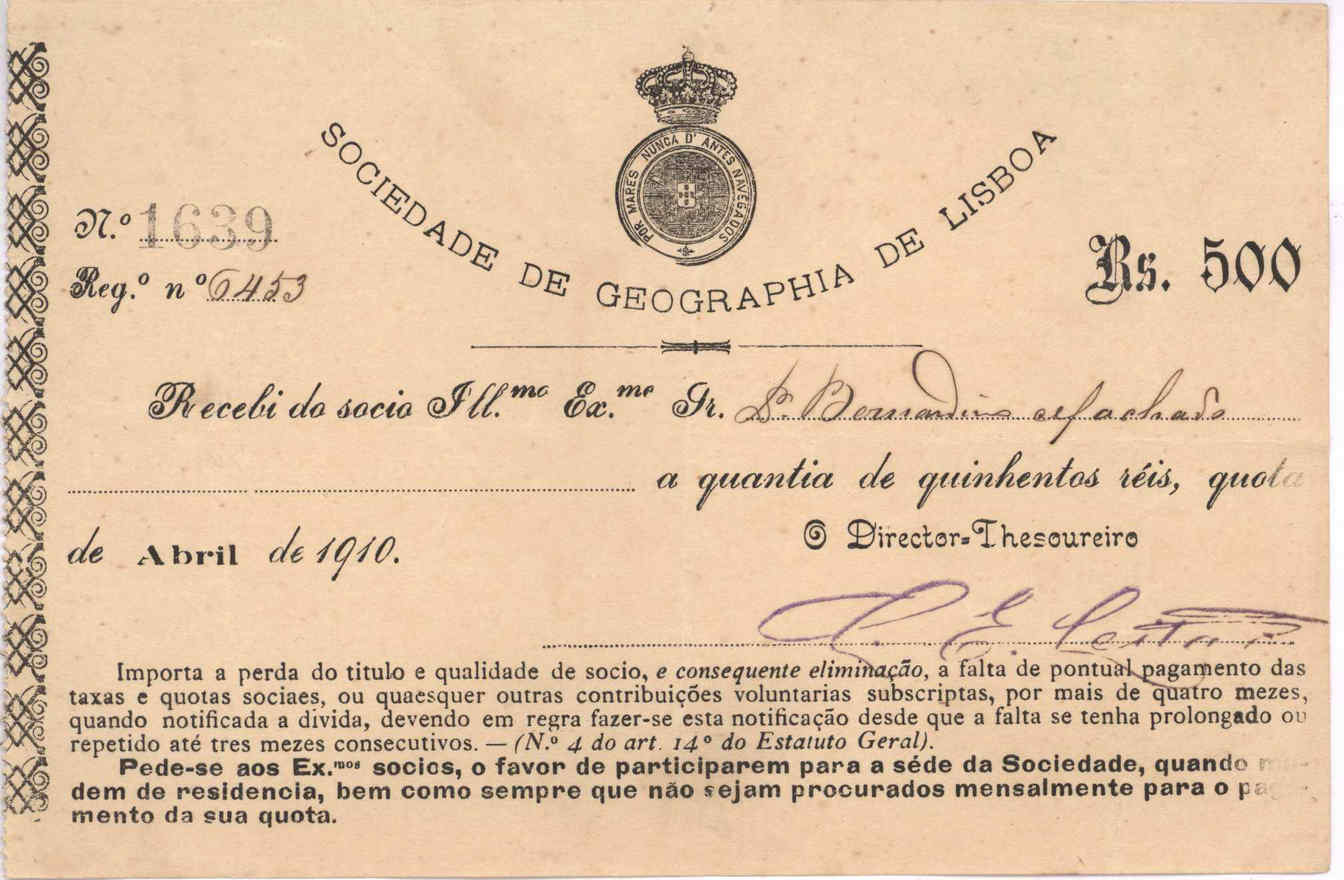 SOCIEDADE DE GEOGRAPHIA DE LISBOA
POR MARES NUNCA D' ANTES NAVEGADOS
N.º 1639
Reg.º nº 6453
Rs. 500
Recebi do socio Ill.mo Ex.mo Sr. Dr. Bernardino Machado
a quantia de quinhentos réis, quota
de Abril de 1910.
O Director=Thesoureiro
Importa a perda do titulo e qualidade de socio, e consequente eliminação, a falta de pontual pagamento das
taxas e quotas sociaes, ou quaesquer outras contribuições voluntarias subscriptas, por mais de quatro mezes,
quando notificada a divida, devendo em regra fazer-se esta notificação desde que a falta se tenha prolongado ou
repetido até tres mezes consecutivos. — (N.º 4 do art. 14º do Estatuto Geral).
Pede-se aos Ex.mos socios, o favor de participarem para a séde da Sociedade, quando mu-
dem de residencia, bem como sempre que não sejam procurados mensalmente para o paga-
mento da sua quota.